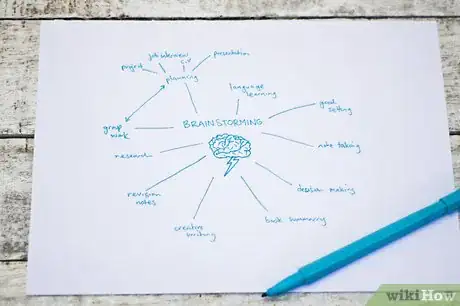 job interview
C.V
presentation
project
planning
language
learning
goal
setting
BRAINSTORMING
group
work
note taking
research
decision making
revision
notes
book summary
creative
writing
wikiHow